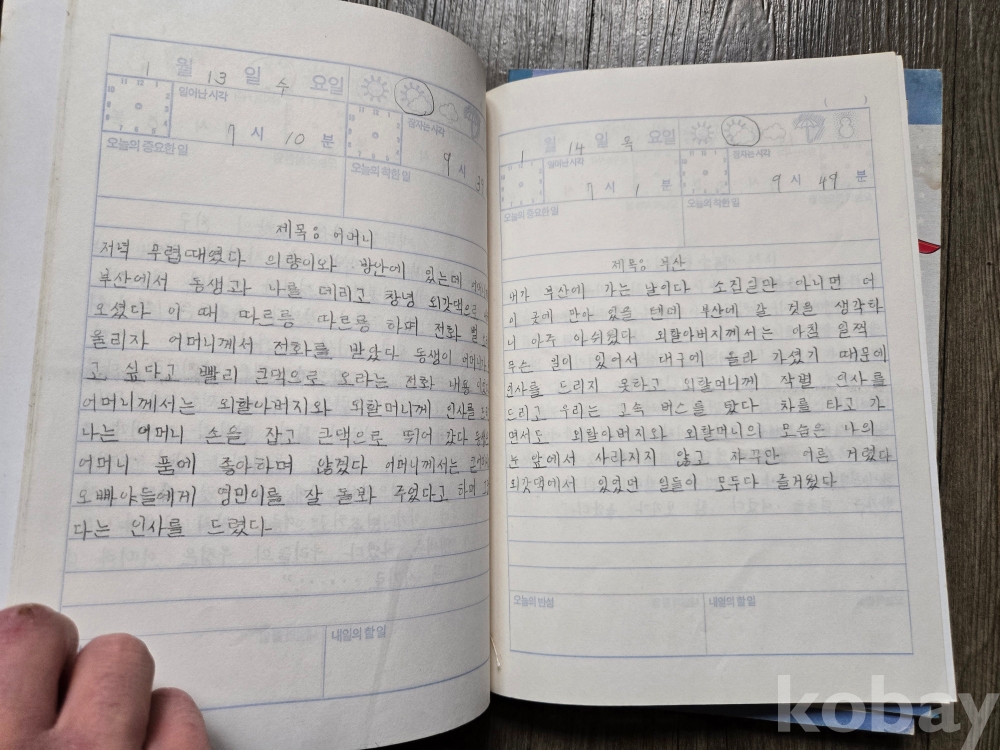 1 월 13 일 수 요일
일어난시각
잠자는시각
7 시 10 분
9 시
오늘의 중요한 일
오늘의 착한 일
제목: 어머니
저녁 무렵때였다 의량이와 방안에 있는데
부산에서 동생과 나를 데리고 창녕 외갓댁으로
오셨다 이 때 따르릉 따르릉 하며 전화 벨
울리자 어머니께서 전화를 받았다 동생이
고 싶다고 빨리 큰댁으로 오라는 전화 내용
어머니께서는 외할아버지와 외할머니께 인사를
나는 어머니 손을 잡고 큰댁으로 뛰어 갔다
어머니 품에 좋아하며 않겼다 어머니께서는
오빠야들에게 영민이를 잘 돌봐 주었다고 하며
다는 인사를 드렸다
내일의 할 일
( )
1 월 14 일 목 요일
일어난시각
잠자는시각
7 시 1 분
9 시 49 분
오늘의 중요한 일
오늘의 착한 일
제목: 부산
내가 부산에 가는 날이다 소집일만 아니면 더
이 곳에 만아 있을 텐데 부산에 갈 것을 생각하
니 아주 아쉬웠다 외할아버지께서는 아침 일찍
무슨 일이 있어서 대구에 올라 가셨기 때문에
인사를 드리지 못하고 외할머니께 작별 인사를
드리고 우리는 고속 버스를 탔다 차를 타고 가
면서도 외할아버지와 외할머니의 모습은 나의
눈 앞에서 사라지지 않고 자꾸만 어른 거렸다
외갓댁에서 있었던 일들이 모두다 즐거웠다
오늘의 반성
내일의 할 일
kobay